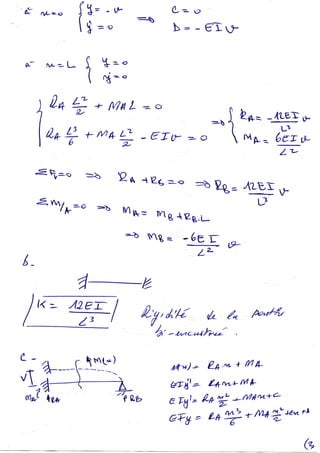 à x=0 { y = -v
y' = 0 => C = 0
D = -EIv
à x=L { y=0
y'=0
{ RA L²/2 + MA L = 0
RA L³/6 + MA L²/2 - EIv = 0 => { RA = -12EI/L³ v
MA = 6EI/L² v
ΣF=0 => RA + RB = 0 => RB = 12EI/L³ v
ΣM/A=0 => MA = MB + RB.L
=> MB = -6EI/L² v
b-
K = 12EI/L³ Rigidité de la poutre
bi-encastrée.
C- M(x)
V
MA RA RB
M(x) = RA x + MA
EIy" = RA x + MA
EIy' = RA x²/2 + MA x + C
EIy = RA x³/6 + MA x²/2 + Cx + D
(3